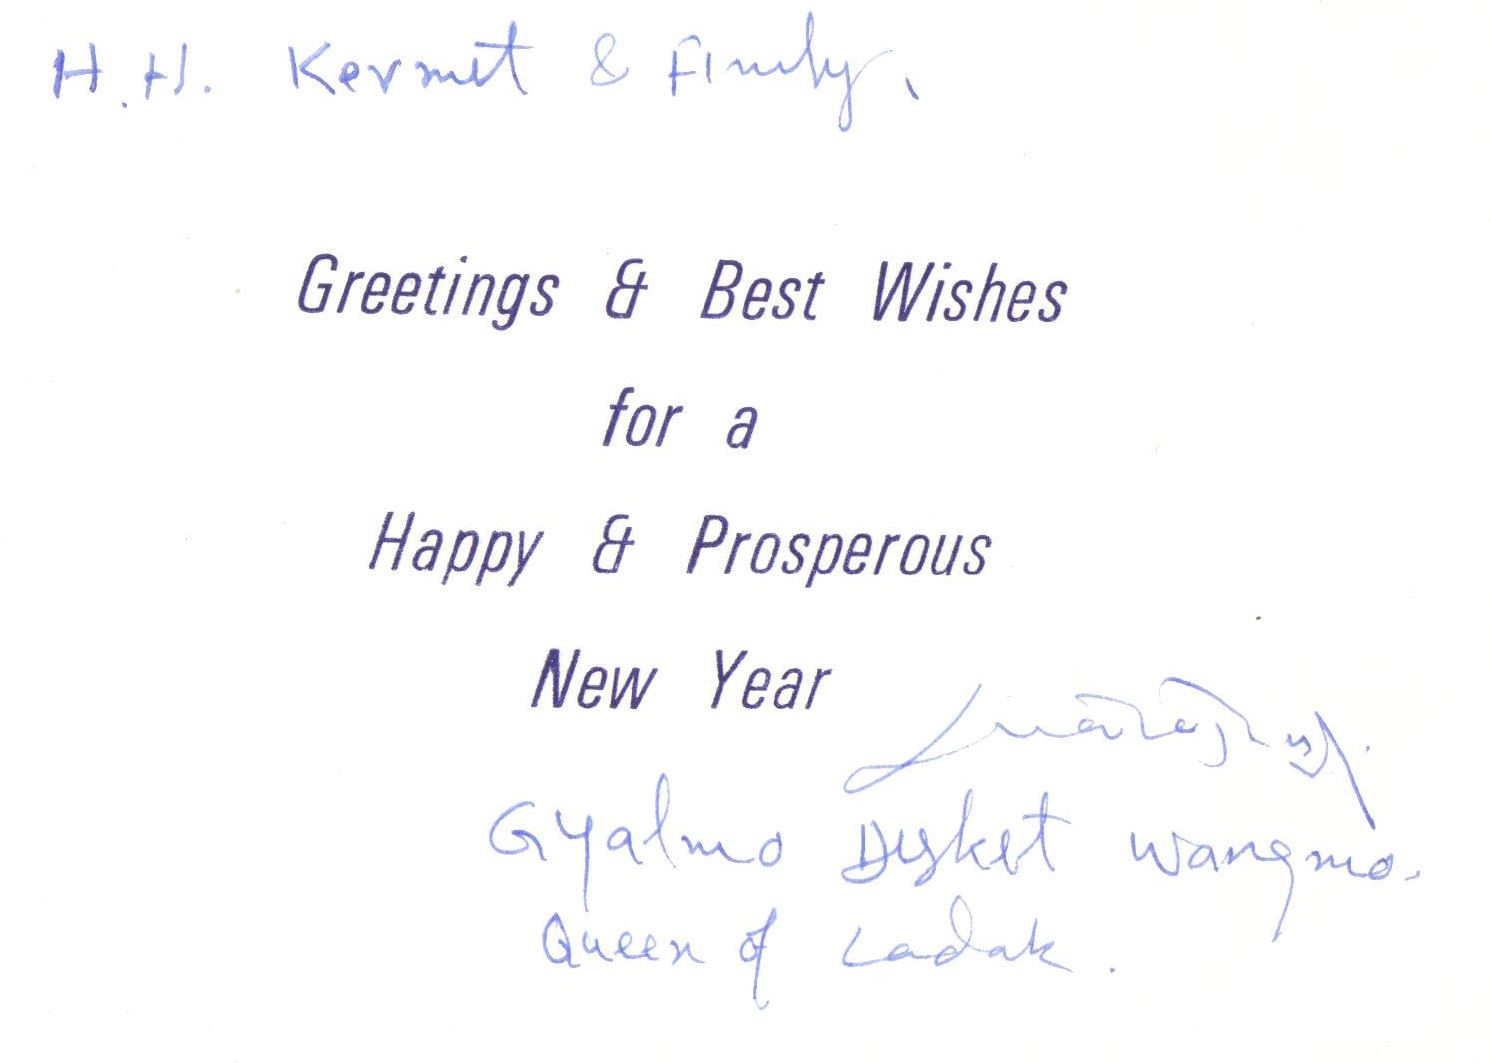 H.H. Kermit & Fimily,
Greetings & Best Wishes
for a
Happy & Prosperous
New Year
Gyalmo Disket Wangmo.
Queen of Ladak.